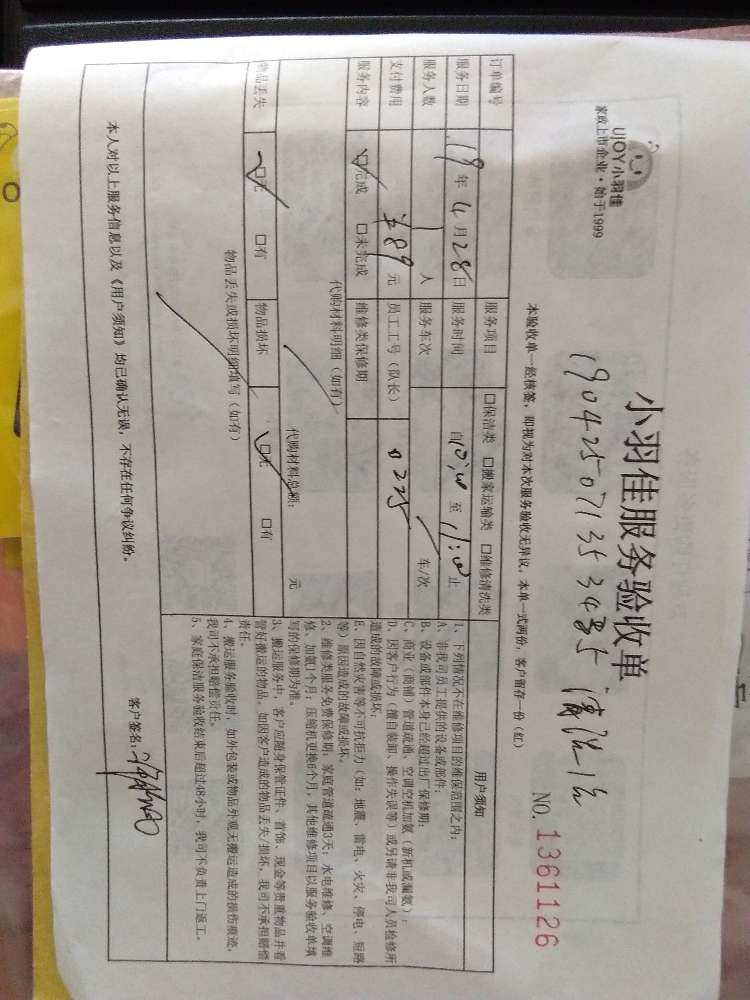 UJOY小羽佳
家政上市企业·始于1999
小羽佳服务验收单
NO. 1361126
本验收单一经核签，即视为对本次服务验收无异议，本单一式两份，客户留存一份（红）
订单编号 服务项目 □保洁类 □搬家运输类 □维修清洗类
服务日期 19年4月28日 服务时间 自10:00至11:00止
服务人数 1人 服务车次 车/次
支付费用 ¥89元 员工工号（队长） 0225
服务内容 □完成 □未完成 维修类保修期
代购材料明细（如有）
代购材料总额： 元
物品丢失 □无 □有 物品损坏 □无 □有
物品丢失或损坏明细填写（如有）
用户须知
1、下列情况不在维修项目的维保范围之内：
A、非我司员工提供的设备或部件；
B、设备或部件本身已经超过出厂保修期；
C、商业（商铺）管道疏通、空调空机加氨（新机或漏氨）；
D、因客户行为（擅自装卸、操作失误等）或另请非我司人员检修所
造成的故障或损坏；
E、因自然灾害等不可抗拒力（如：地震、雷电、火灾、停电、短路
等）原因造成的故障或损坏。
2、维修类服务免费保修期：家庭管道疏通3天；水电维修、空调维
修、加氨1个月；压缩机更换6个月，其他维修项目以服务验收单填
写的保修期为准。
3、搬运服务中，客户应随身保管证件、首饰、现金等贵重物品并看
管好搬运的物品，如因客户造成的物品丢失/损坏，我司不承担赔偿
责任。
4、搬运服务验收时，如外包装或物品外观无搬运造成的损伤痕迹，
我司不承担赔偿责任。
5、家庭保洁服务验收结束后超过48小时，我司不负责上门返工。
本人对以上服务信息以及《用户须知》均已确认无误，不存在任何争议纠纷。
客户签名：